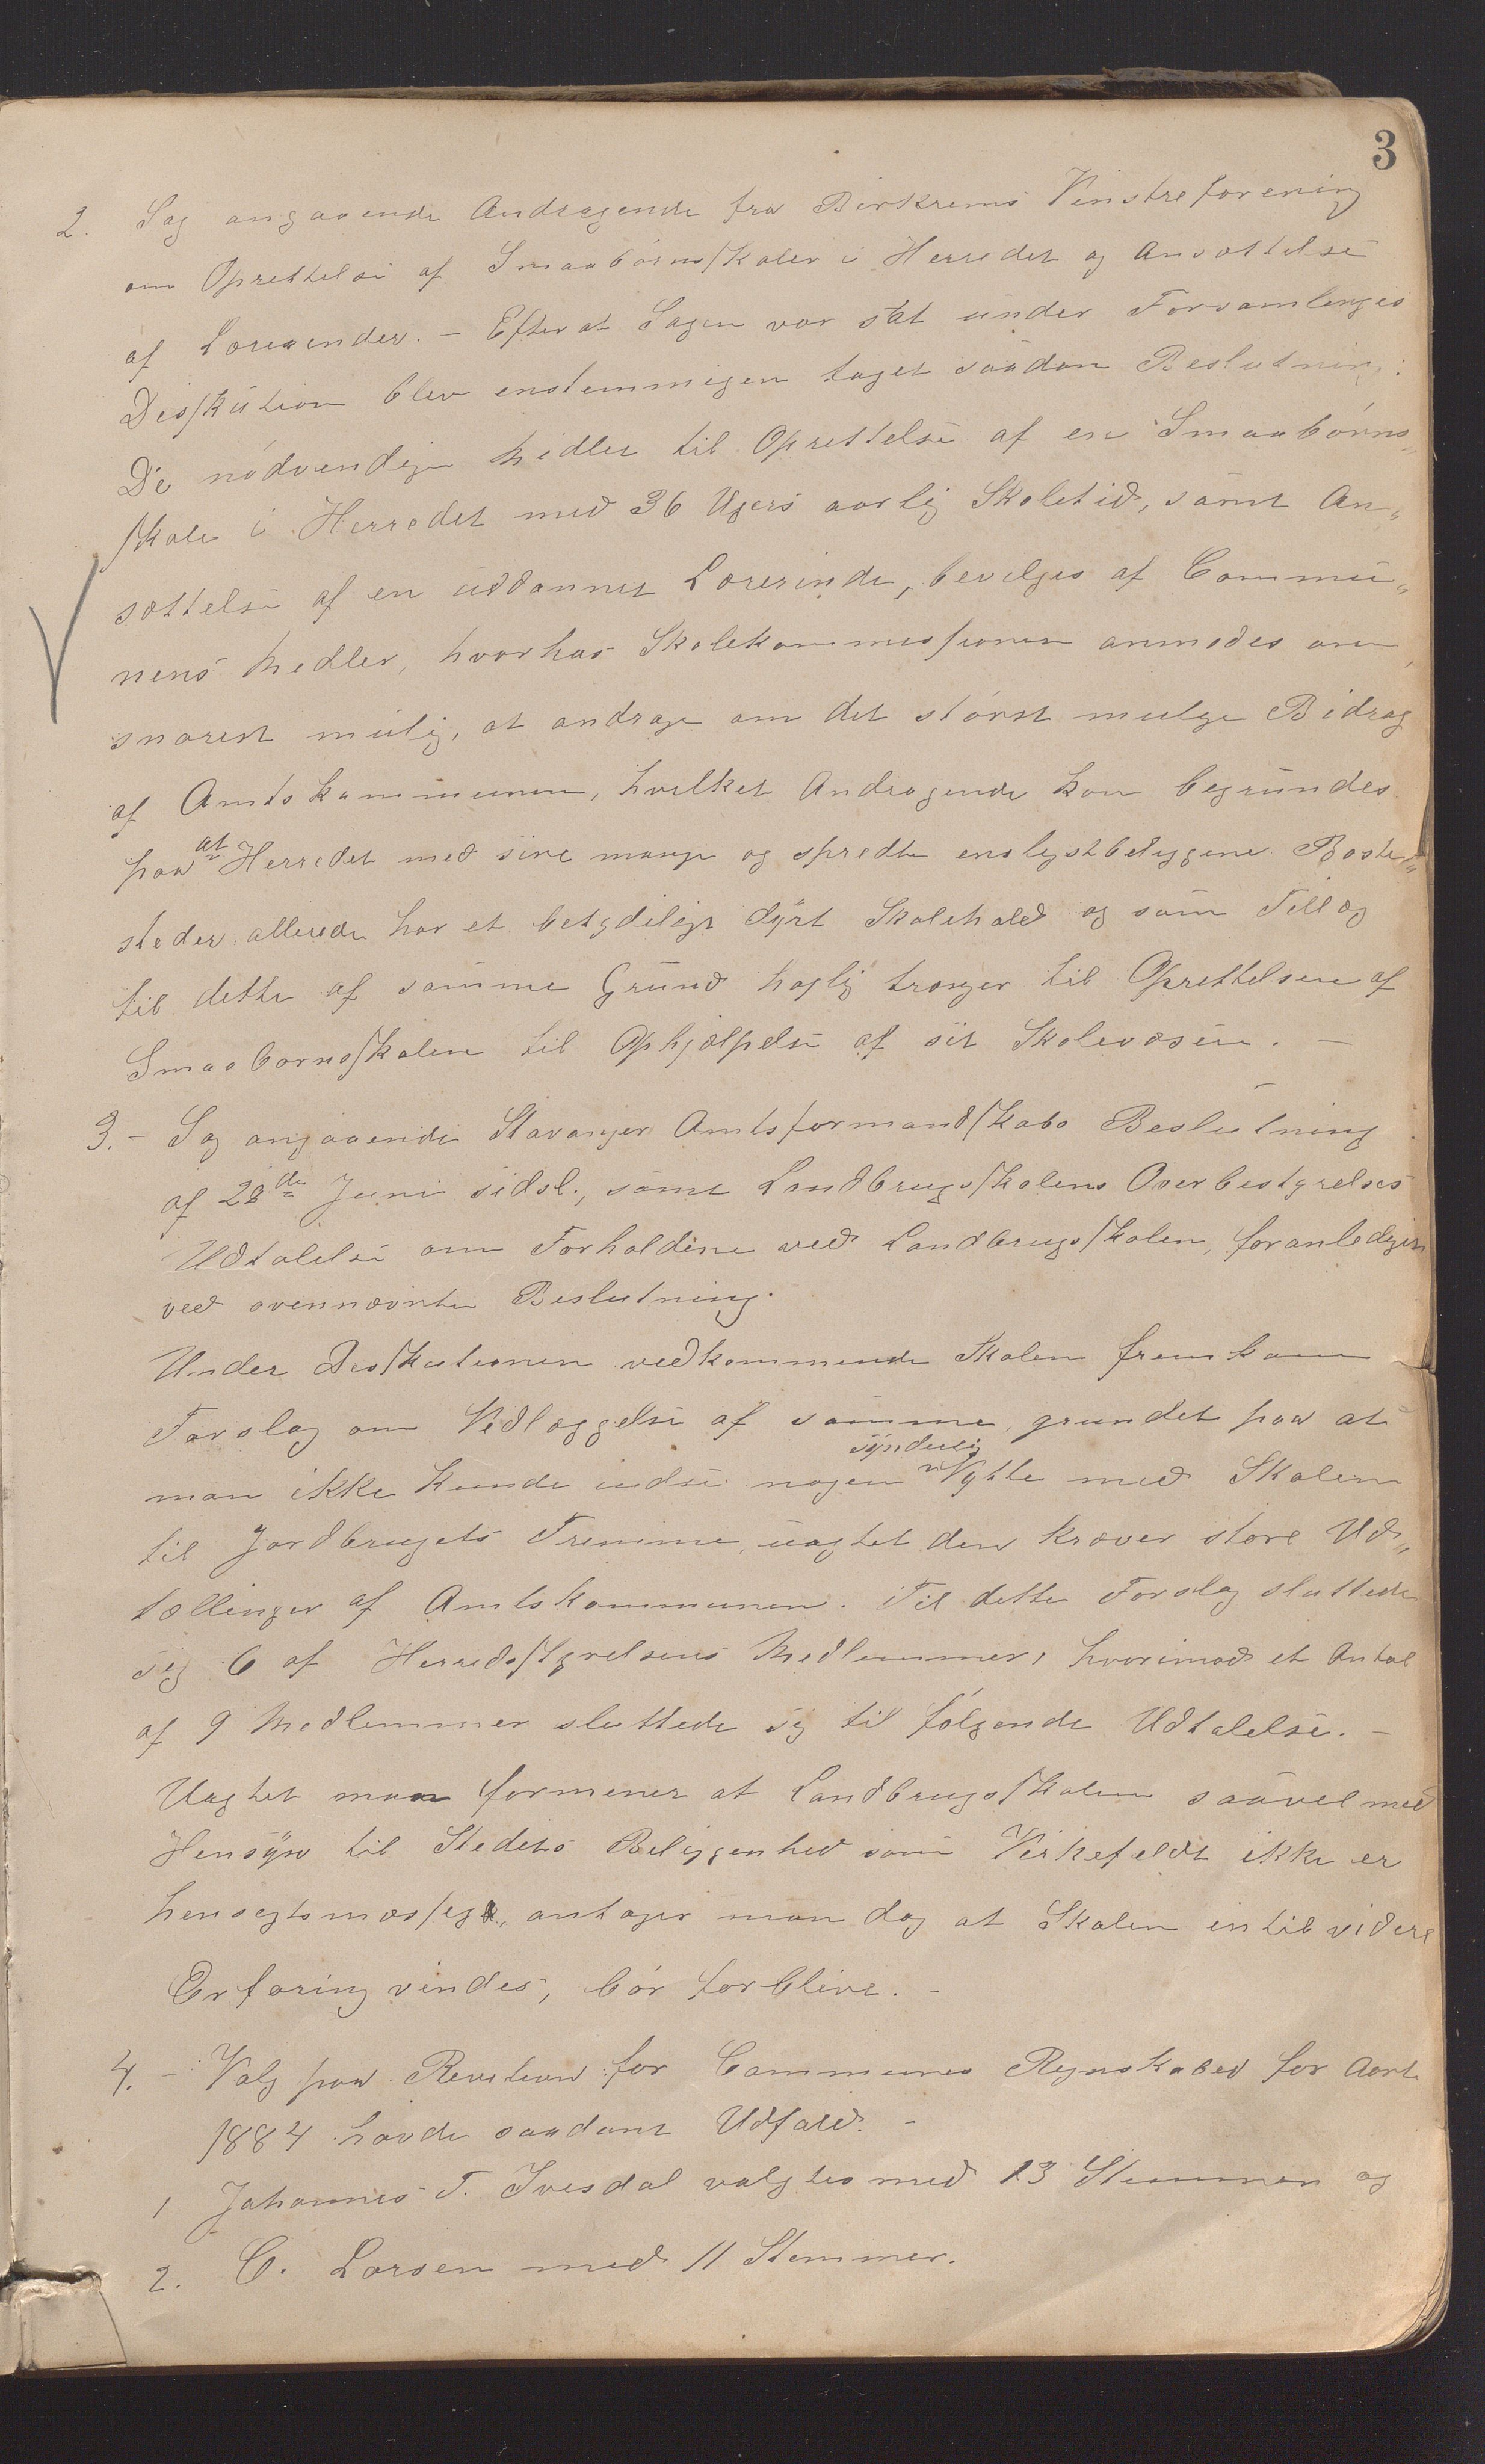 3
2. Sag angaaende Andragende fra Birkrems Vinstreforening
om Oprettelse af Smaabørnsskoler i Herredet og Ansættelse
af Lærerinder. – Efter at Sagen var sat under Forsamlinges
Diskution blev enstemmigen taget saadan Beslutning:
De nødvendige Midler til Oprettelse af en Smaabørns„
skole i Herredet med 36 Ugers aarlig Skoletid, samt An„
sættelse af en uddannet Lærerinde, bevilges af Commu„
nens Medler, hvorhos Skolekommissionen anmodes om,
snarest mulig, at andrage om det størst mulge Bidrag
af Amtskommunen, hvilket Andragende kan begrundes
paa at Herredet med sine mange og spredte enslystbeliggene Boste„
steder allerede har et betydeligt dyrt Skolehold og som Tillæg
til dette af samme Grund høglig trænger til Oprettelsen af
Smaabørnsskolen til Ophjælpelse af sit Skolevæsen. –
3. – Sag angaaende Stavanger Amtsformandskabs Beslutning
af 28de Juni sidsl., samt Landbrugsskolens Overbestyrelses
Udtalelse om Forholdene ved Landbrugsskolen, foranlediget
ved ovennævnte Beslutning.
Under Diskutionen vedkommende Skolen fremkom
Forslag om Nedlæggelse af samme, grundet paa at
man ikke kunde indse nogen synderlig Nytte med Skolen
til Jordbrugets Fremme, uagtet den kræver store Ud„
tællinger af Amtskommunen. Til dette Forslag sluttede
sig 6 af Herredsstyrelsens Medlemmer, hvorimod et Antal
af 9 Medlemmer sluttede sig til følgende Udtalelse. –
Uagtet man formener at Landbrugsskolen saavel med
Hensyn til Stedets Beliggenhed som Virkefeldt ikke er
hensegtsmæsseg, antager man dog at Skolen intil videre
Erfaring vindes, bør forblive. –
4. – Valg paa Revisionen for Communes Regnskaber for Aaret
1884 havde saadant Udfald. –
1 Johannes T. Ivesdal valgtes med 13 Stemmer og
2. C. Larsen med 11 Stemmer.